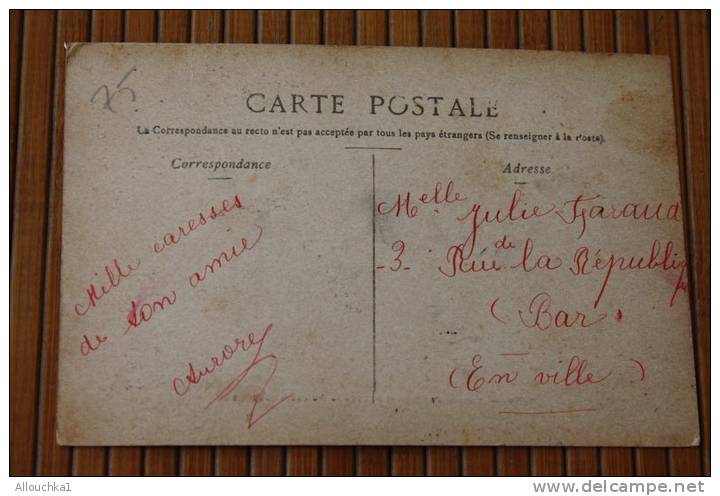 75
CARTE POSTALE
La Correspondance au recto n'est pas acceptée par tous les pays étrangers (Se renseigner à la Poste).
Correspondance
Mille caresses
de ton amie
Aurore
Adresse
Melle Julie
-3- Rue de la République
(Bar)
(En ville)
Allouchka1
www.delcampe.net